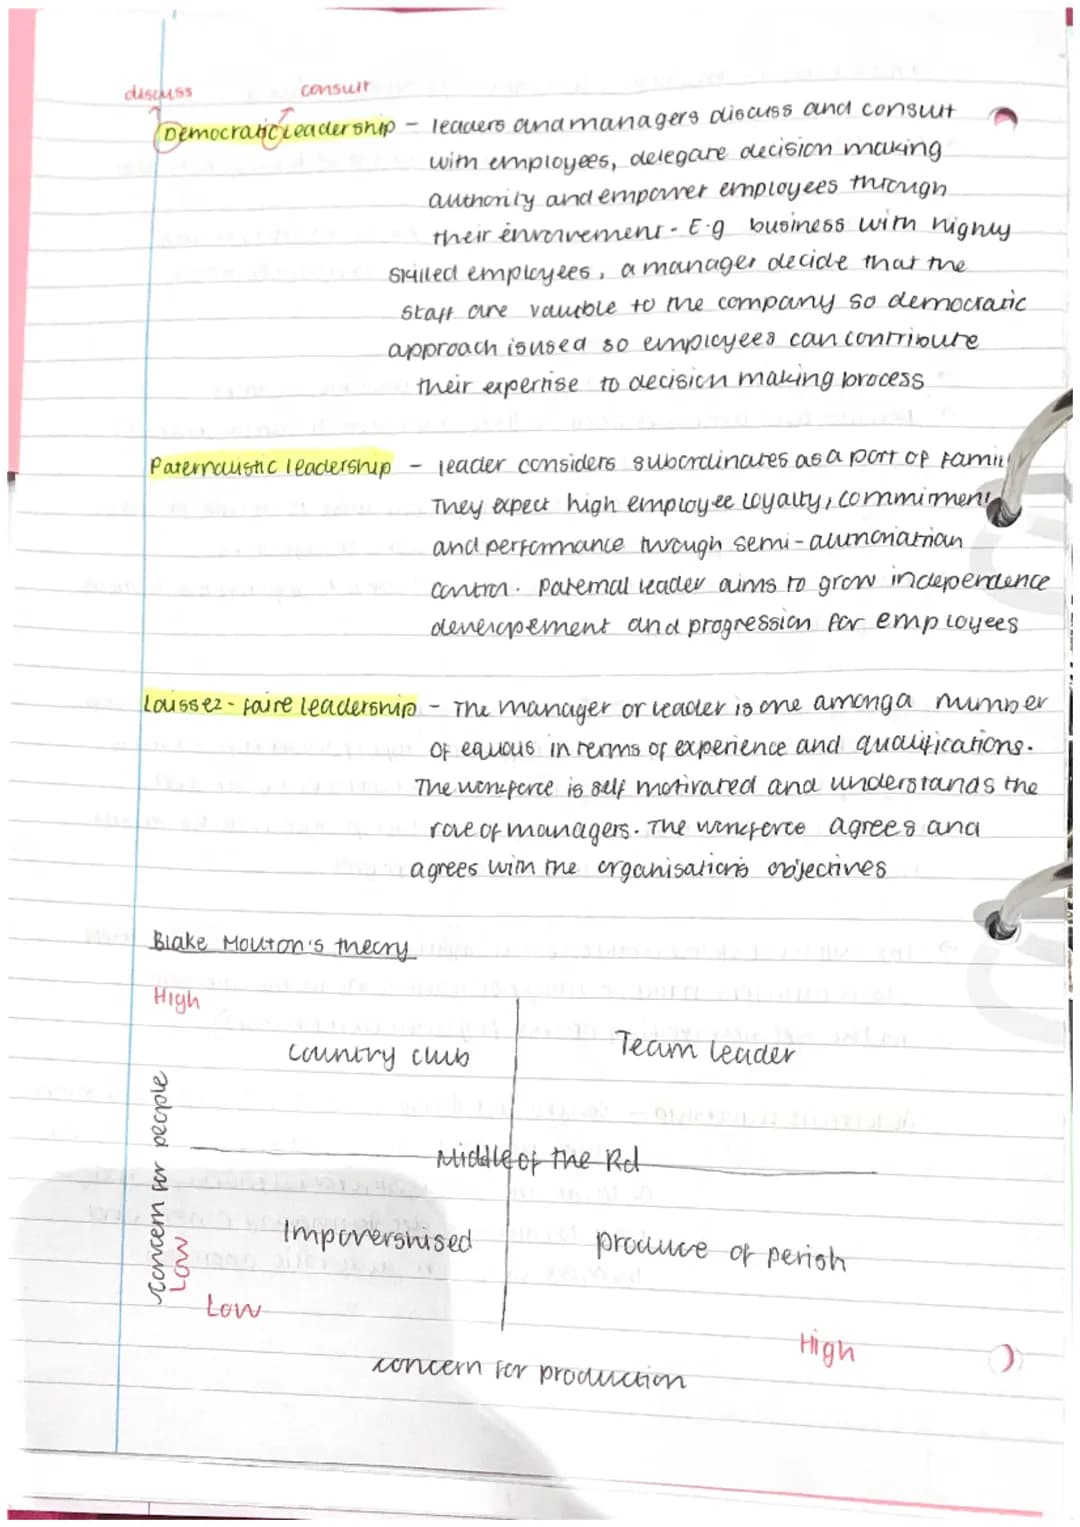 discuss consult
Democratic Leadership - leaders and managers discuss and consult
with employees, delegate decision making
authority and empower employees through
their envolvement - E.g business with highly
skilled employees, a manager decide that the
staff are valuble to the company so democratic
approach is used so employees can contribute
their expertise to decision making process
Paternalistic leadership - leader considers subordinates as a part of famil
They expect high employee loyalty, commiment
and performance through semi-authoriatrian
control. Paternal leader aims to grow independence
development and progression for employees
Laissez-faire leadership - The manager or leader is one among a number
of equals in terms of experience and qualifications.
The workforce is self motivated and understands the
role of managers. The workforce agrees and
agrees with the organisation's objectives
Blake Mouton's theory
High
Country club Team leader
Concern for people
Middle of the Rd
Impovershised produce of perish
Low
Low
High
concern for production